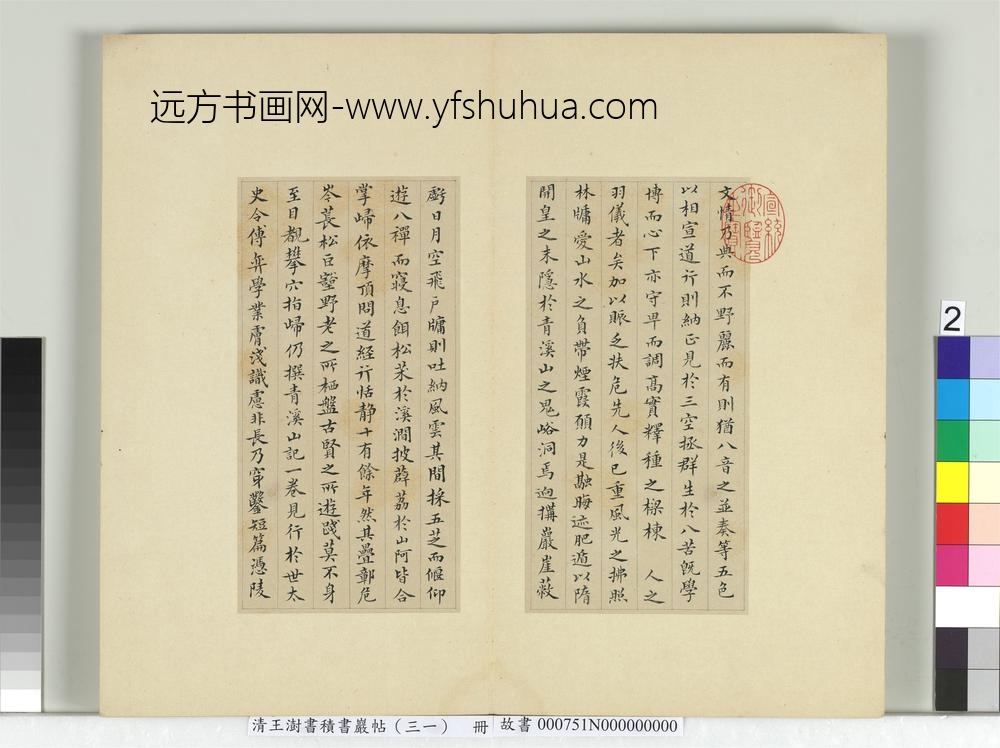 远方书画网-www.yfshuhua.com
文情乃典而不野麗而有則猶八音之並奏等五色
以相宣道行則納正見於三空拯群生於八苦既學
博而心下亦守卑而調高實釋種之樑棟 人之
羽儀者矣加以賑乏扶危先人後己重風光之拂照
林牖愛山水之負帶煙霞願力是融晦迹肥遁以隋
開皇之末隱於青溪山之鬼峪洞焉迥搆巖崖蔽
虧日月空飛戶牖則吐納風雲其間採五芝而偃仰
遊八禪而寢息餌松菜於溪澗披薜荔於山阿皆合
掌歸依摩頂問道經行恬静十有餘年然其疊鄣危
岑萇松巨壑野老之所栖盤古賢之所遊踐莫不身
至目覩攀穴指歸仍撰青溪山記一卷見行於世太
史令傅弈學業膚淺識慮非長乃穿鑿短篇憑陵
2
清王澍書積書巖帖(三一) 冊 故書 000751N000000000